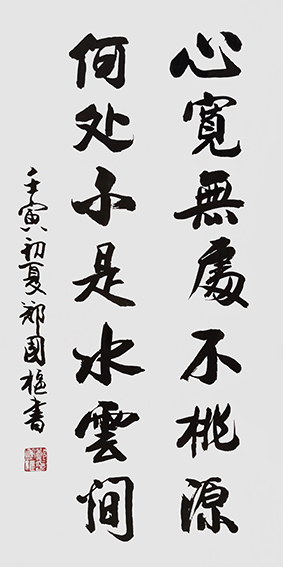 心寬無處不桃源
何处不是水雲間
壬寅初夏鄭國樞書